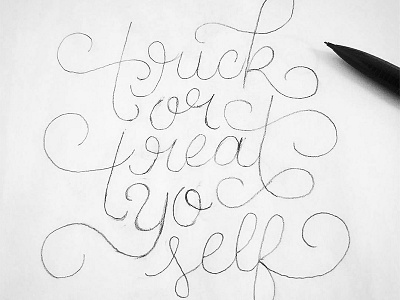 truck
or
treat
yo
self